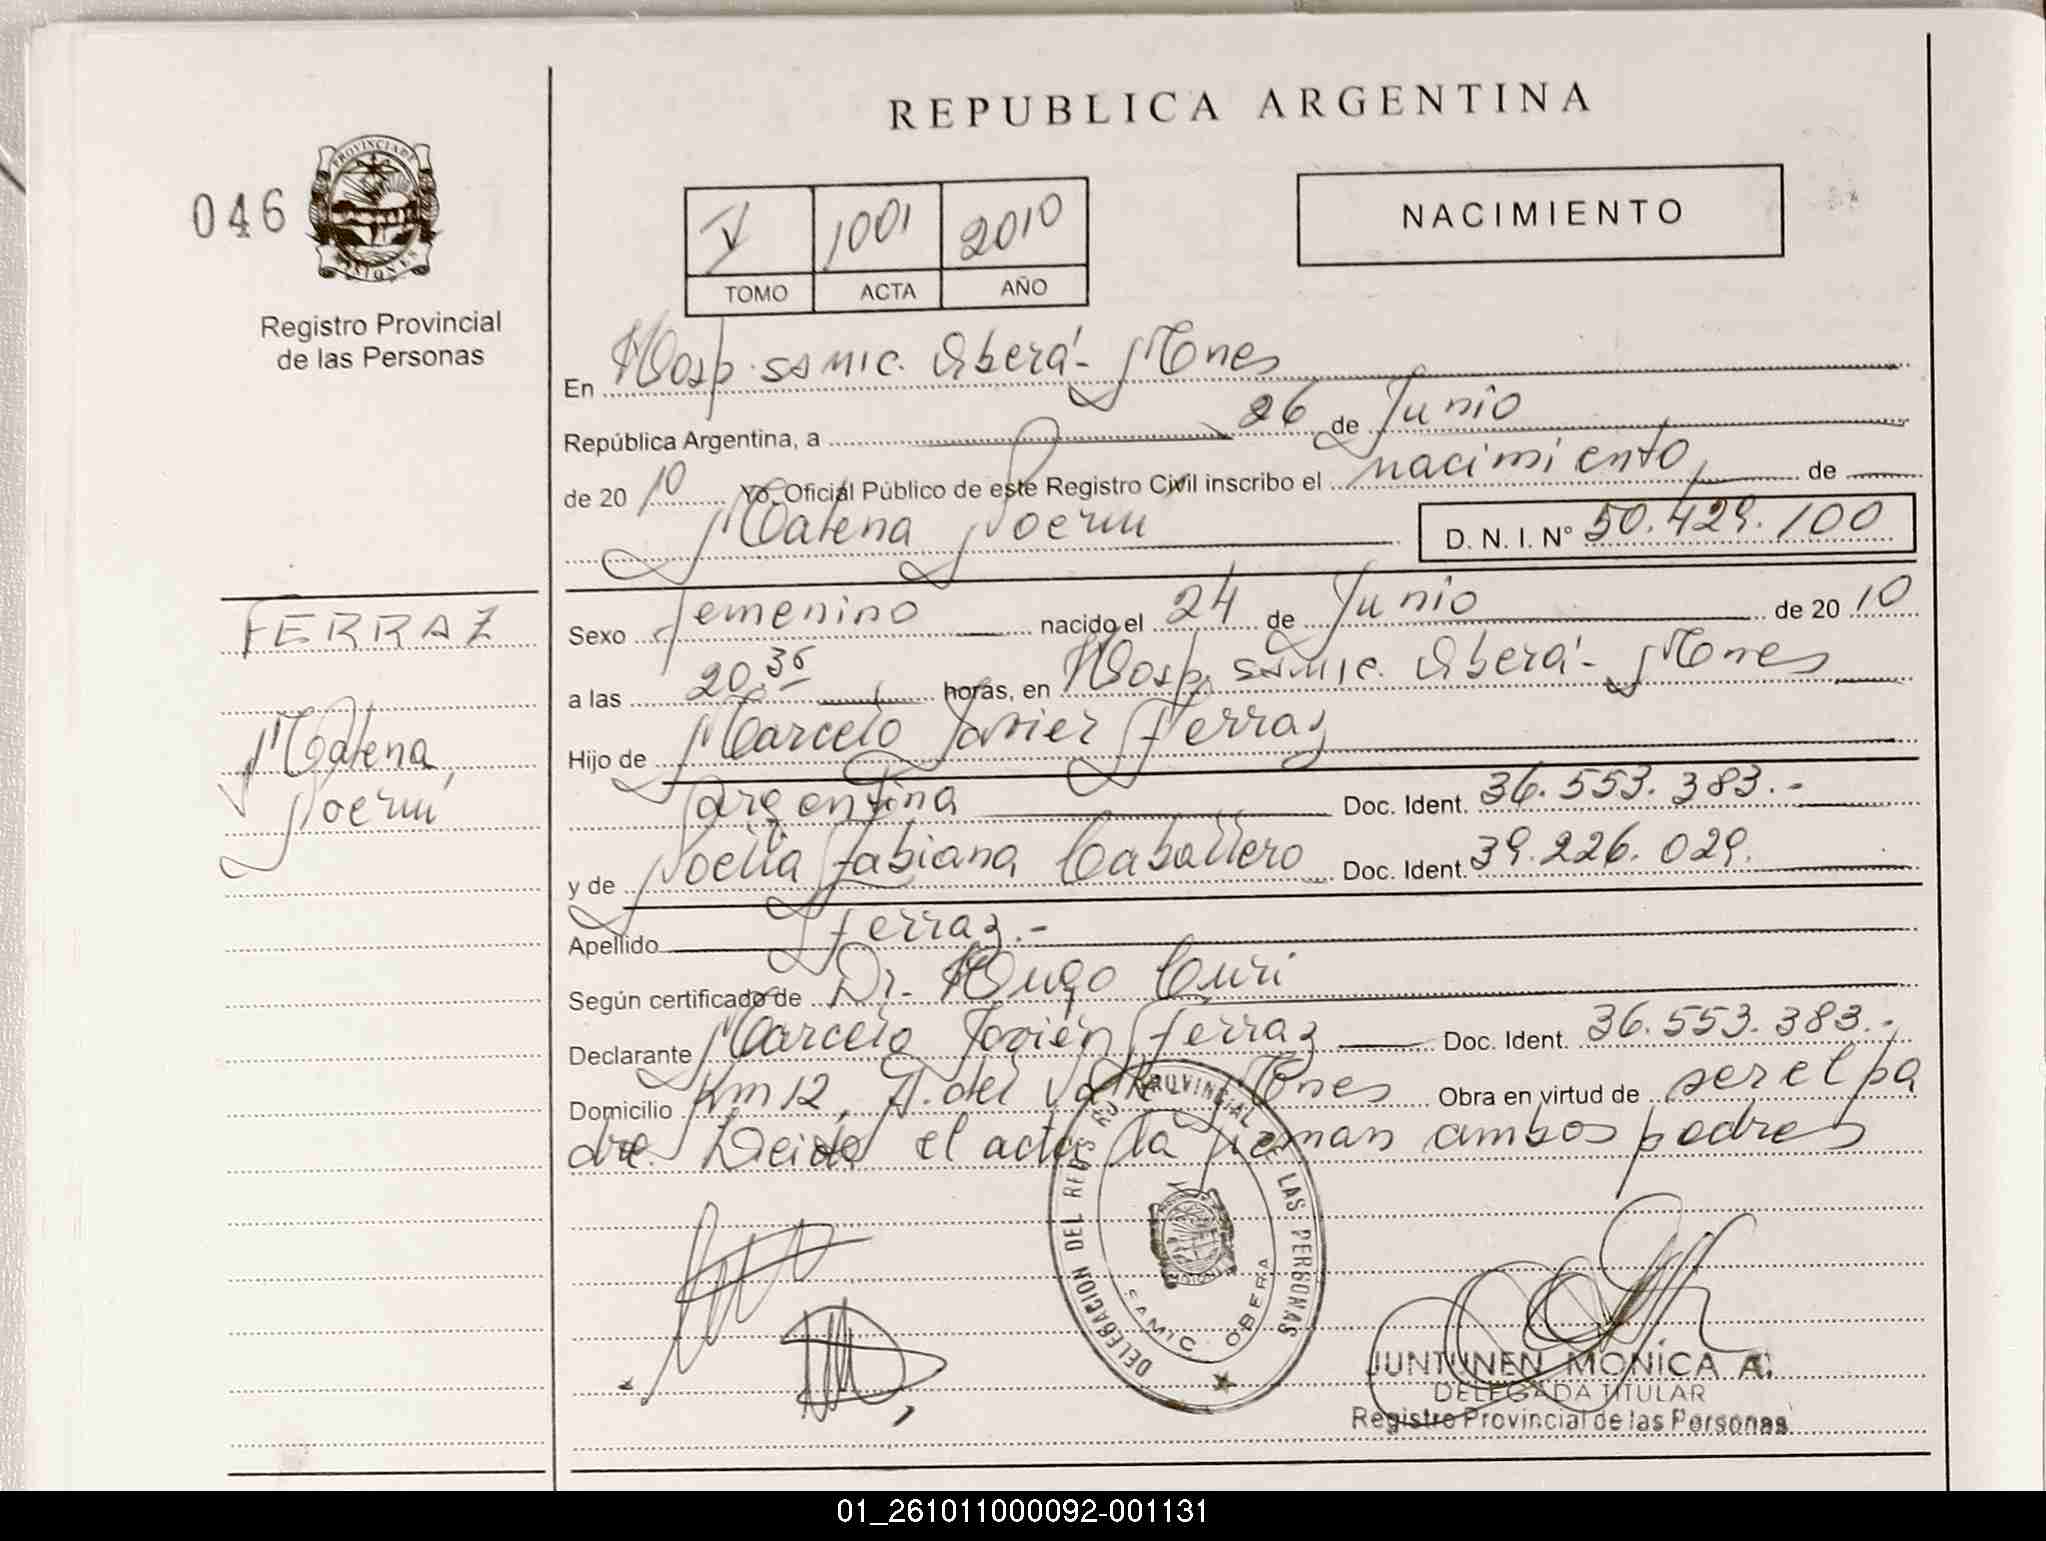 REPUBLICA ARGENTINA
046
PROVINCIA DE
MISIONES
Registro Provincial
de las Personas
V 1001 2010
TOMO ACTA AÑO
NACIMIENTO
En Hosp. SAMIC. Oberá - Mnes
República Argentina, a 26 de Junio
de 2010 Yo, Oficial Público de este Registro Civil inscribo el nacimiento, de
Malena Noemí D. N. I. N° 50.429.100
FERRAZ
Malena,
Noemí
Sexo femenino nacido el 24 de Junio de 2010
a las 20.35 horas, en Hosp. SAMIC. Oberá - Mnes
Hijo de Marcelo Javier Ferraz
argentina Doc. Ident. 36.553.383.-
y de Noelia Fabiana Caballero Doc. Ident. 39.226.029.
Apellido Ferraz.-
Según certificado de Dr. Hugo Curi
Declarante Marcelo Javier Ferraz Doc. Ident. 36.553.383.-
Domicilio Km 12, A. del Valle Mnes Obra en virtud de ser el pa
dre. Leida el acta la firman ambos padres
DELEGACION DEL REG. PROVINCIAL DE LAS PERSONAS
SAMIC - OBERA
JUNTUNEN MONICA A.
DELEGADA TITULAR
Registro Provincial de las Personas
01_261011000092-001131